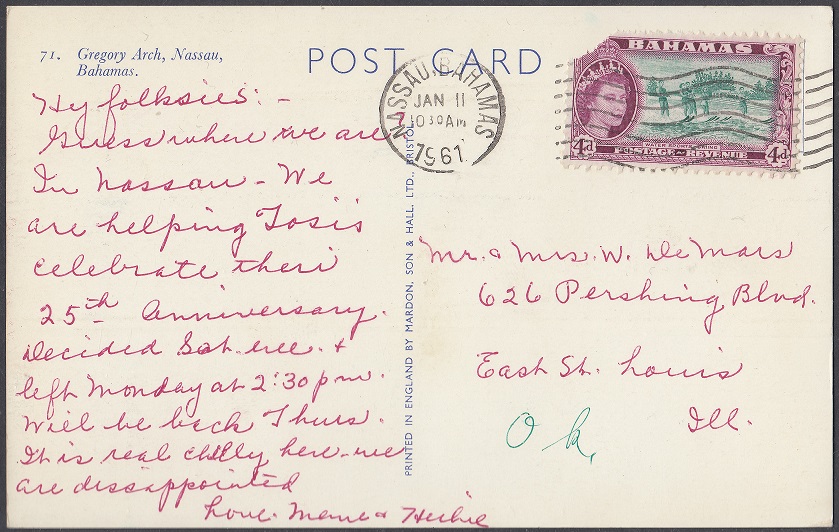 71. Gregory Arch, Nassau,
Bahamas.
POST CARD
NASSAU, BAHAMAS
JAN 11
10 30 AM
1961
BAHAMAS
WATER SPORTS - SKIING
POSTAGE & REVENUE
4d 4d
Hy folksies: -
Guess where we are
In Nassau - We
are helping Tosis
celebrate theri
25th Anniversary.
Decided Sat. eve. &
left Monday at 2:30 pm.
Will be back Thurs.
It is real chilly here - we
are dissappointed
Love - Meme & Heibie
PRINTED IN ENGLAND BY MARDON, SON & HALL, LTD., BRISTOL
Mr. & Mrs. W. DeMars
626 Pershing Blvd.
East St. Louis
Ill.
Ok,